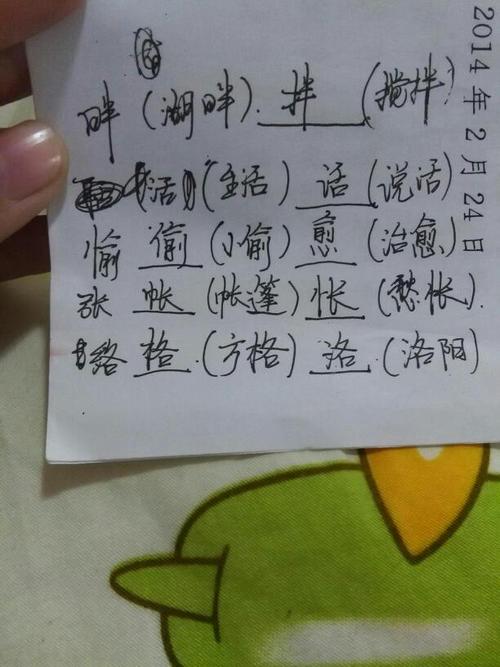 2014年2月24日
畔（湖畔）. 拌（搅拌）
（活）（生活）话（说话）
愉 偷（小偷）愈（治愈）
张 帐（帐蓬）怅（愁怅）.
络 格.（方格）洛.（洛阳）